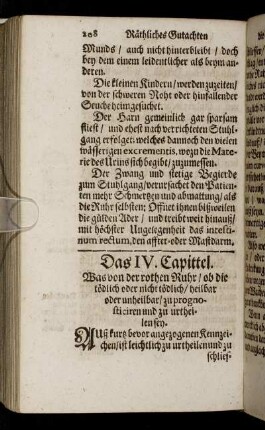 208 Räthliches Gutachten
Munds / auch nicht hinterbleibt / doch
bey dem einem leidentlicher als beym an-
deren.
Die kleinen Kindern / werden zuzeiten /
von der schweren Noht oder hinfallender
Seuche heimgesuchet.
Der Harn gemeinlich gar sparsam
fliest / und ehest nach verrichteten Stuhl-
gang erfolget: welches dannoch den vielen
wässerigen excrementis, wozu die Mate-
rie des Urins sich begibt / zuzumessen.
Der Zwang und stetige Begierde
zum Stuhlgang / verursachet den Patien-
ten mehr Schmertzen und abmattung / als
die Ruhr selbsten; Offnet ihnen bisweilen
die gülden Ader / und treibt weit hinauß /
mit höchster Ungelegenheit das intesti-
num rectum, den affter- oder Mastdarm.
Das IV. Capittel.
Was von der rothen Ruhr / ob die
tödlich oder nicht tödlich / heilbar
oder unheilbar / zu progno-
sticiren und zu urthei-
len sey.
Auß kurtz bevor angezogenen Kennzei-
chen / ist leichtlich zu urtheilen und zu
schlies-